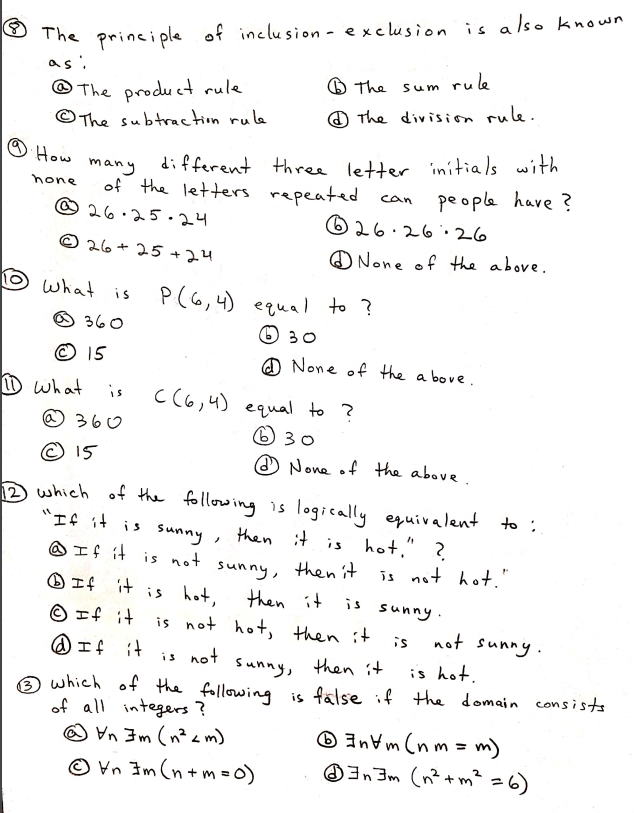 ⑧ The principle of inclusion-exclusion is also known
as:
ⓐ The product rule ⓑ The sum rule
ⓒ The subtraction rule ⓓ The division rule.
⑨ How many different three letter initials with
none of the letters repeated can people have?
ⓐ 26·25·24 ⓑ 26·26·26
ⓒ 26+25+24 ⓓ None of the above.
⑩ What is P(6,4) equal to?
ⓐ 360 ⓑ 30
ⓒ 15 ⓓ None of the above.
⑪ What is C(6,4) equal to?
ⓐ 360 ⓑ 30
ⓒ 15 ⓓ None of the above.
⑫ Which of the following is logically equivalent to:
"If it is sunny, then it is hot."?
ⓐ If it is not sunny, then it is not hot."
ⓑ If it is hot, then it is sunny.
ⓒ If it is not hot, then it is not sunny.
ⓓ If it is not sunny, then it is hot.
⑬ Which of the following is false if the domain consists
of all integers?
ⓐ ∀n ∃m (n² < m) ⓑ ∃n∀m (nm = m)
ⓒ ∀n ∃m (n+m=0) ⓓ ∃n∃m (n²+m²=6)